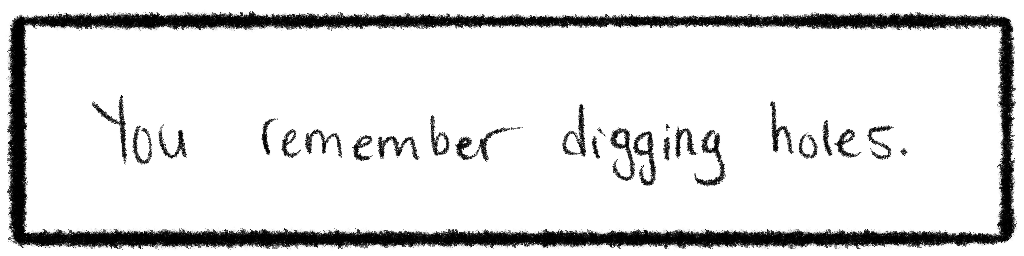 You remember digging holes.